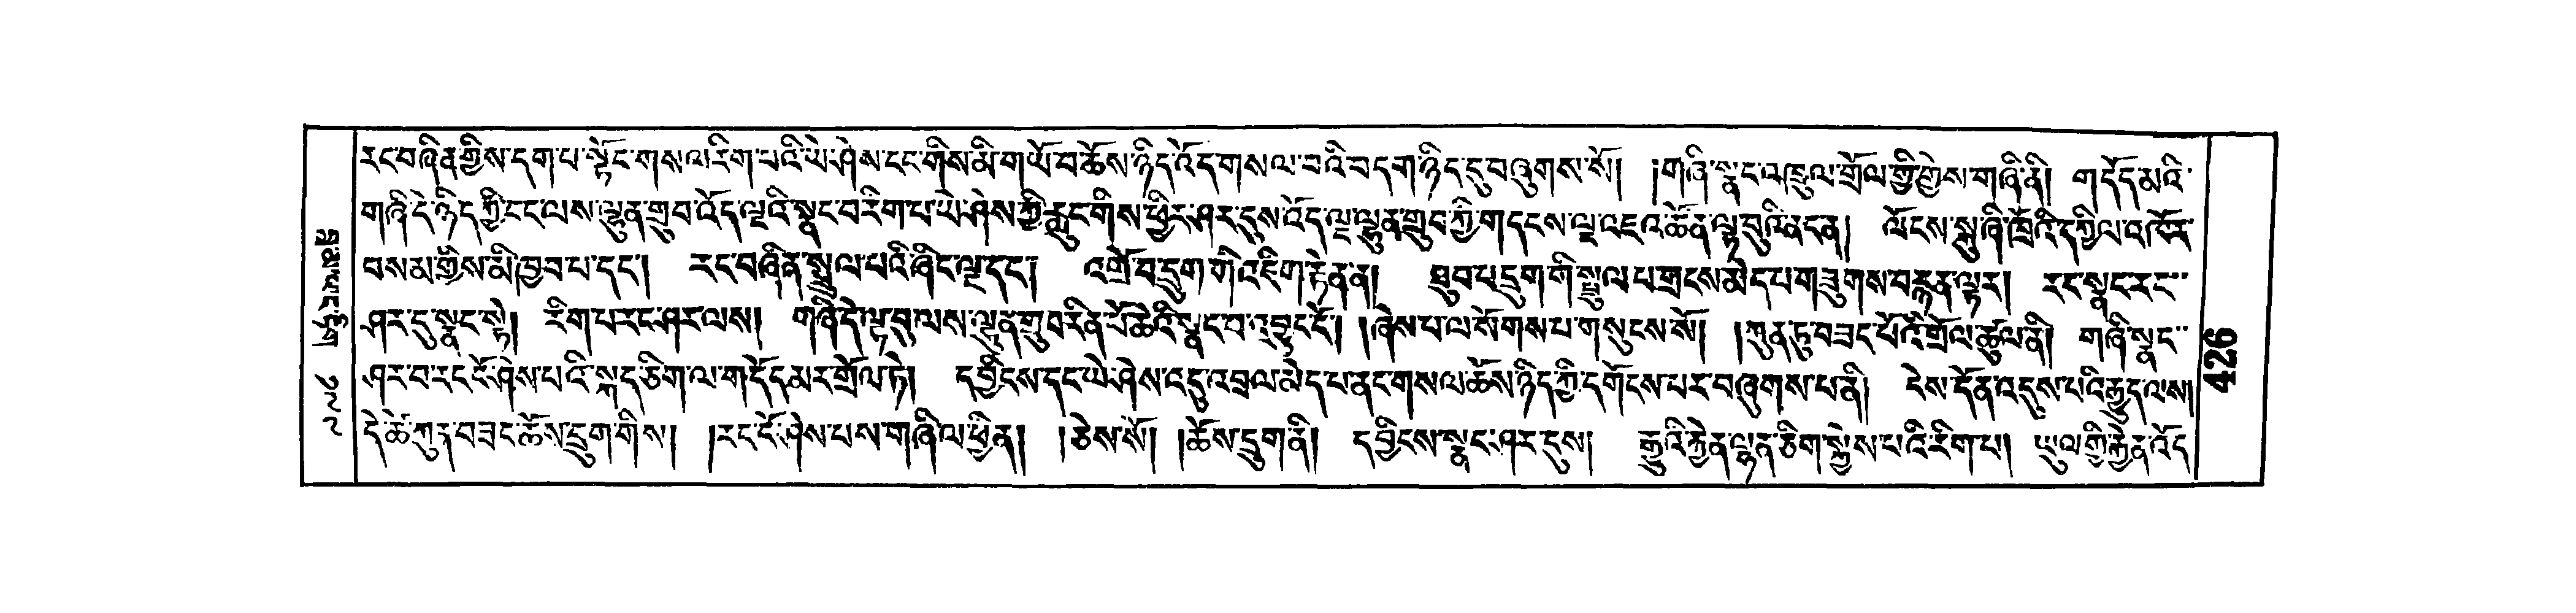 རང་བཞིན་གྱིས་དག་པ་སྟོང་གསལ་རིག་པའི་ཡེ་ཤེས་ངང་གིས་མི་གཡོ་བ་ཆོས་ཉིད་འོད་གསལ་བའི་བདག་ཉིད་དུ་བཞུགས་སོ། །གཞི་སྣང་འཁྲུལ་གྲོལ་གྱི་གྱེས་གཞི་ནི། གདོད་མའི་
གཞི་དེ་ཉིད་ཀྱི་ངང་ལས་ལྷུན་གྲུབ་འོད་ལྔའི་སྣང་བ་རིག་པ་ཡེ་ཤེས་ཀྱི་རླུང་གིས་ཕྱིར་ཤར་དུས་འོད་ལྔ་ལྷུན་གྲུབ་ཀྱི་གདངས་ལྔ་འཇའ་ཚོན་ལྟ་བུ་ཡིན་ངན། ལོངས་སྐུ་ཞི་ཁྲོའི་དཀྱིལ་འཁོར་
བསམ་གྱིས་མི་ཁྱབ་པ་དང་། རང་བཞིན་སྤྲུལ་པའི་ཞིང་ལྔ་དང་། འགྲོ་བ་དྲུག་གི་འཇིག་རྟེན་ན། ཐུབ་པ་དྲུག་གི་སྤྲུལ་པ་གྲངས་མེད་པ་གཟུགས་བརྙན་ལྟར། རང་སྣང་རང་
ཤར་དུ་སྣང་སྟེ། རིག་པ་རང་ཤར་ལས། གཞི་དེ་ལྟ་བུ་ལས་ལྷུན་གྲུབ་རིན་པོ་ཆེའི་སྣང་བ་འབྱུང་ངོ་། །ཞེས་པ་ལ་སོགས་པ་གསུངས་སོ། །ཀུན་ཏུ་བཟང་པོའི་གྲོལ་ཚུལ་ནི། གཞི་སྣང་
ཤར་བ་རང་ངོ་ཤེས་པའི་སྐད་ཅིག་ལ་གདོད་མར་གྲོལ་ཏེ། དབྱིངས་དང་ཡེ་ཤེས་འདུ་འབྲལ་མེད་པ་ནང་གསལ་ཆོས་ཉིད་ཀྱི་དགོངས་པར་བཞུགས་པ་ནི། ངེས་དོན་འདུས་པའི་རྒྱུད་ལས།
དེ་ཚེ་ཀུན་བཟང་ཆོས་དྲུག་གིས། །རང་ངོ་ཤེས་པས་གཞི་ལ་ཕྱིན། །ཅེས་སོ། །ཆོས་དྲུག་ནི། དབྱིངས་སྣང་ཤར་དུས། རྒྱུའི་རྐྱེན་ལྷན་ཅིག་སྐྱེས་པའི་རིག་པ། ཡུལ་གྱི་རྐྱེན་འོད